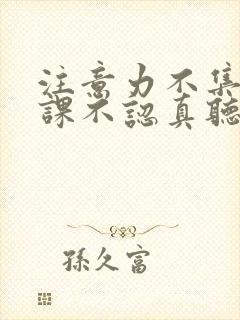 注意力不集
課不認真聽
孫久富